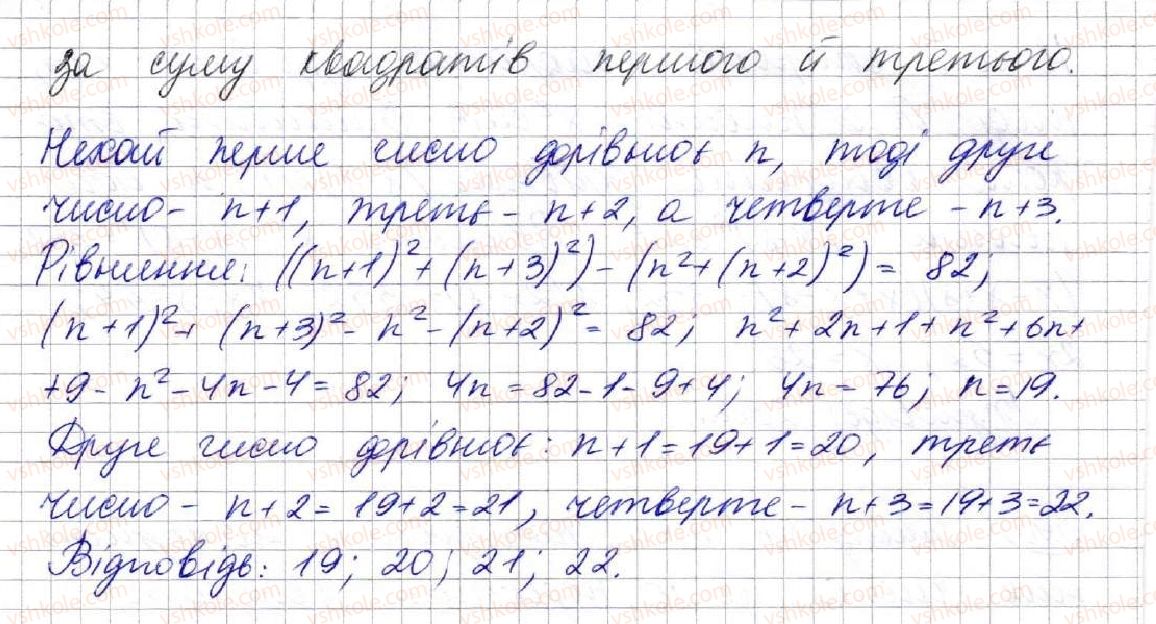 за суму квадратів першого й третього.
Нехай перше число дорівнює n, тоді друге
число - n+1, третє - n+2, а четверте - n+3.
Рівняння: ((n+1)²+(n+3)²)-(n²+(n+2)²)= 82;
(n+1)²+(n+3)²-n²-(n+2)²= 82; n²+2n+1+n²+6n+
+9-n²-4n-4=82; 4n=82-1-9+4; 4n=76; n=19.
Друге число дорівнює: n+1=19+1=20, третє
число - n+2=19+2=21, четверте - n+3=19+3=22.
Відповідь: 19; 20; 21; 22.